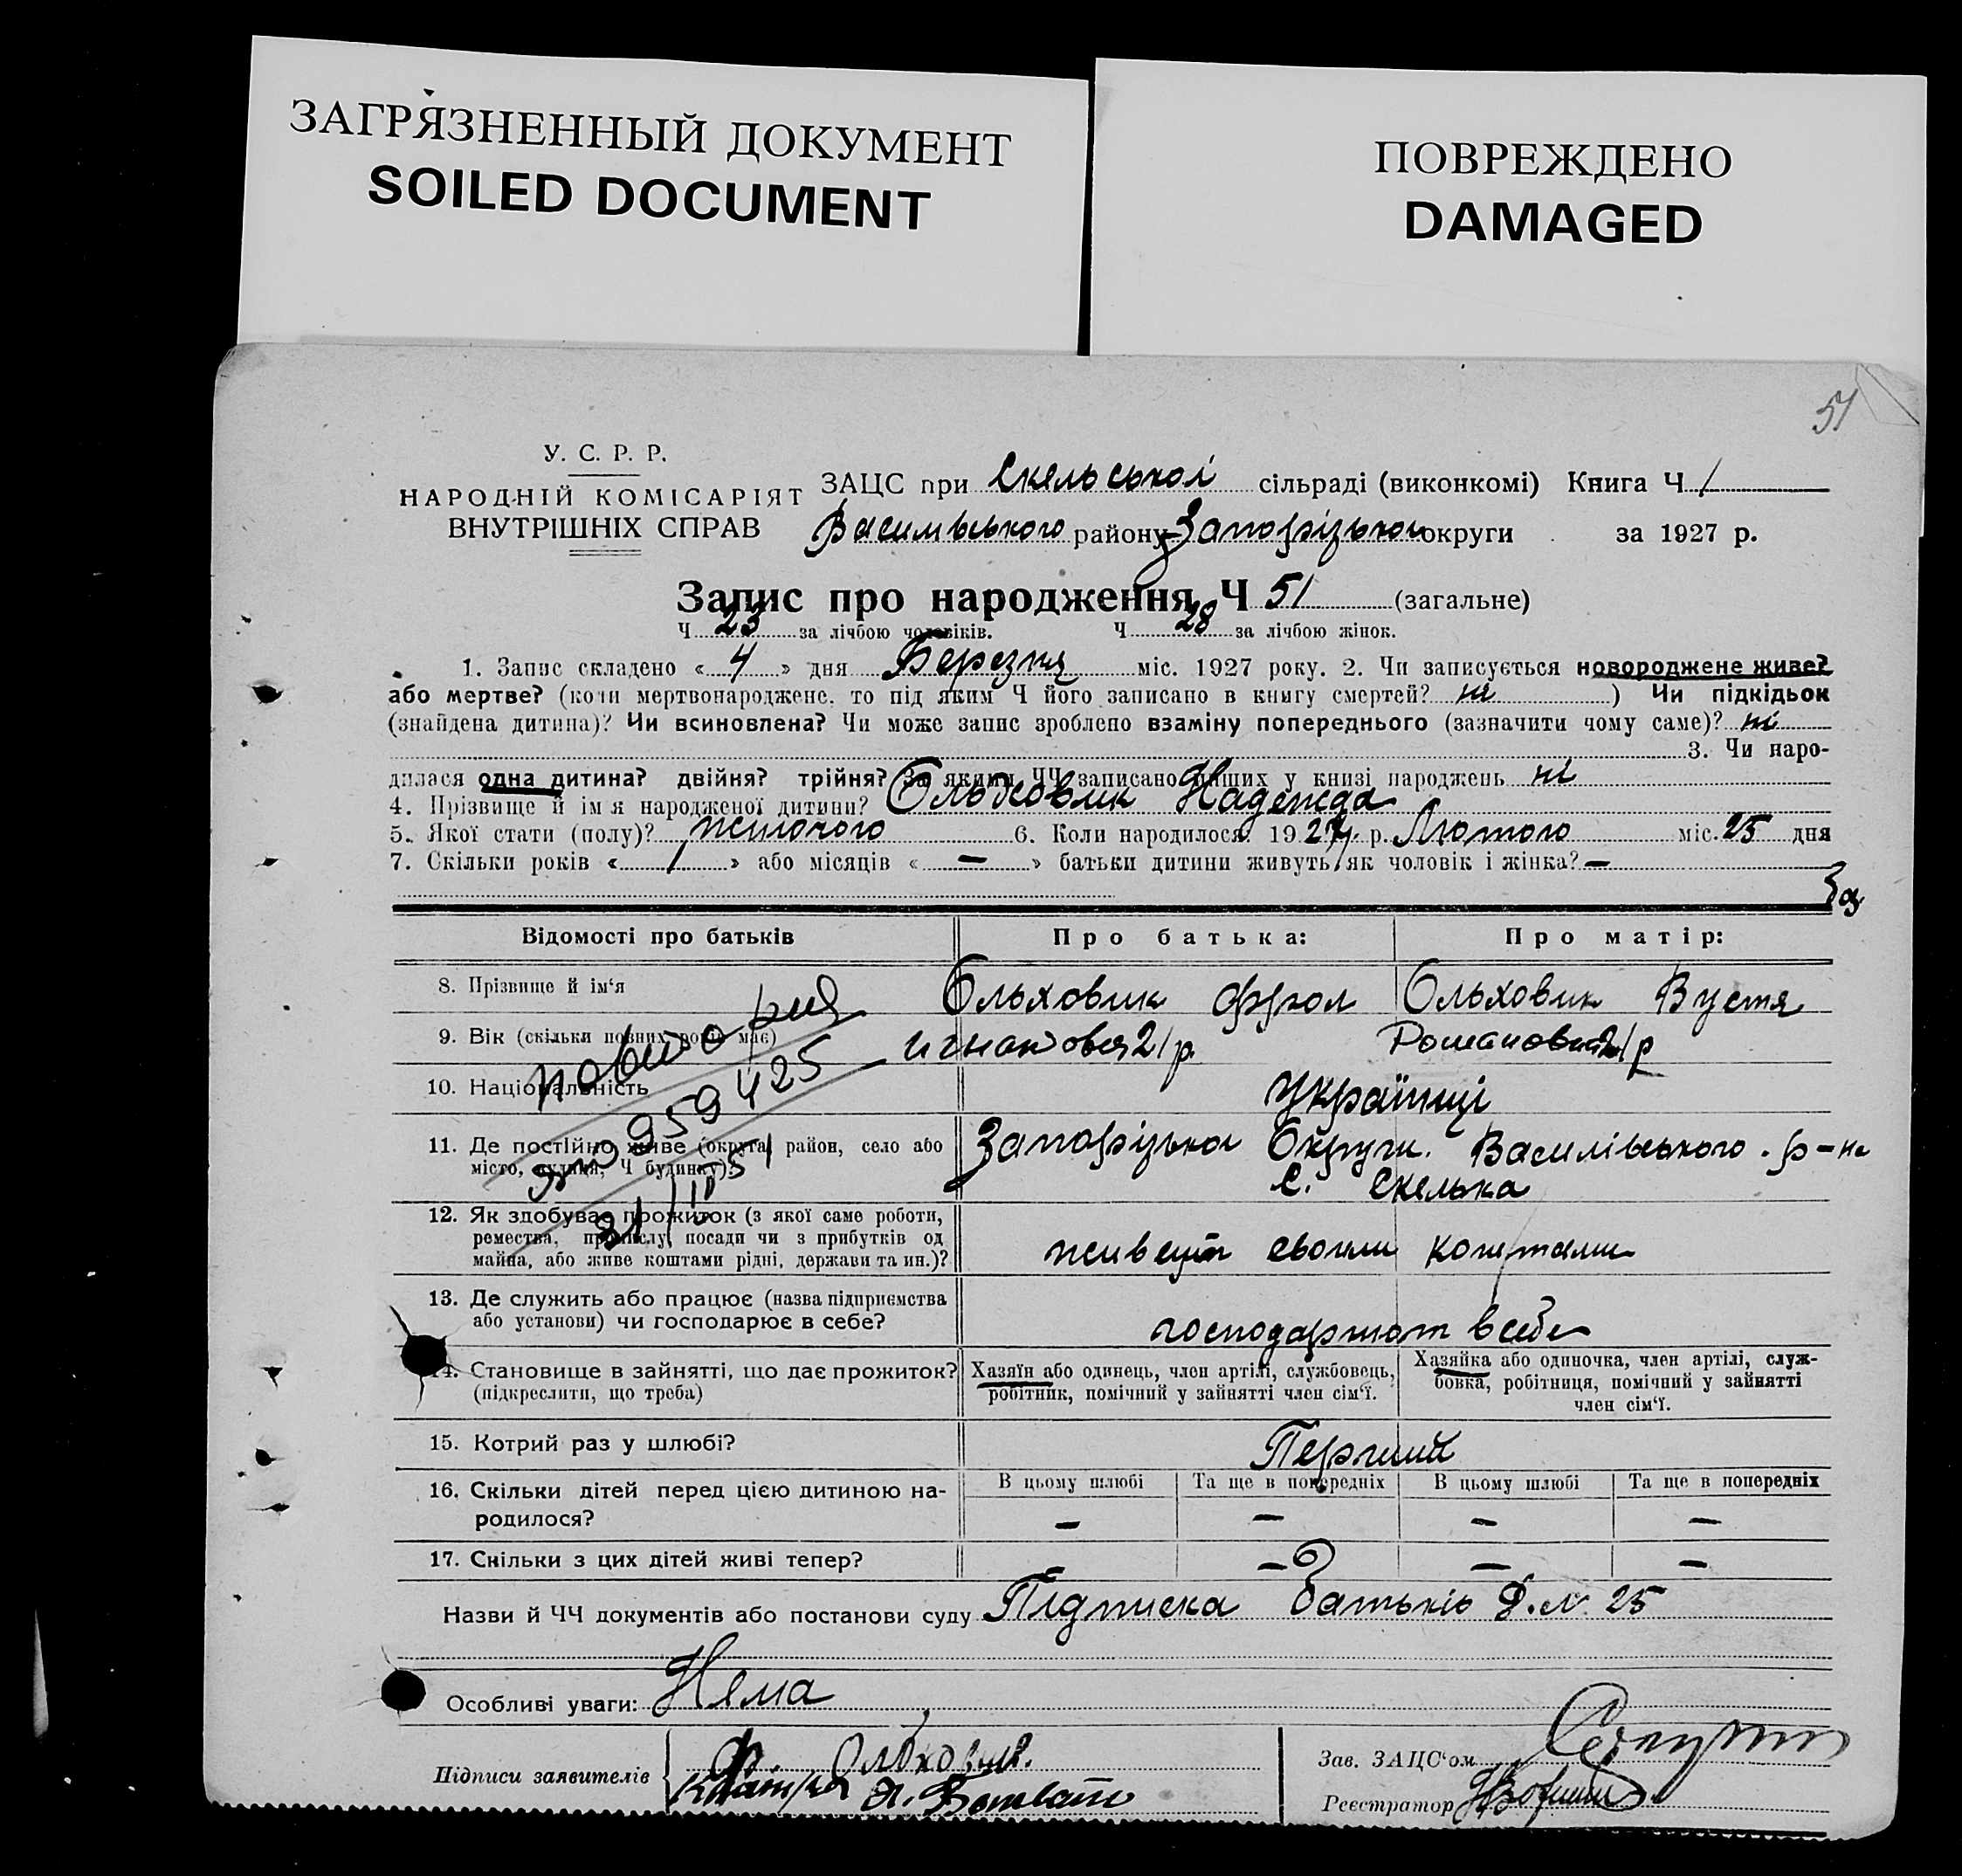 ЗАГРЯЗНЕННЫЙ ДОКУМЕНТ
SOILED DOCUMENT
ПОВРЕЖДЕНО
DAMAGED
51
У. С. Р. Р.
НАРОДНІЙ КОМІСАРІЯТ
ВНУТРІШНІХ СПРАВ
ЗАЦС при Скельської сільраді (виконкомі) Книга Ч 1
Василівського району Запорізької округи за 1927 р.
Запис про народження Ч 51 (загальне)
Ч 23 за лічбою чоловіків. Ч 28 за лічбою жінок.
1. Запис складено « 4 » дня Березня міс. 1927 року. 2. Чи записується новороджене живе?
або мертве? (коли мертвонароджене, то під яким Ч його записано в книгу смертей? ні ) Чи підкідьок
(знайдена дитина)? Чи всиновлена? Чи може запис зроблено взаміну попереднього (зазначити чому саме)? ні
3. Чи наро-
дилася одна дитина? двійня? трійня? За якими ЧЧ записано инших у книзі народжень ні
4. Прізвище й імя народженої дитини? Ольховик Надежда
5. Якої стати (полу)? жиночого 6. Коли народилося? 1927 р. Лютого міс. 25 дня
7. Скільки років « 1 » або місяців « — » батьки дитини живуть як чоловік і жінка? —
Відомості про батьків
Про батька:
Про матір:
8. Прізвище й ім'я
Ольховик Фрол
Ольховик Вустя
9. Вік (скільки повних років має)
21 р.
21 р
10. Національність
Українці
11. Де постійно живе (округа, район, село або
місто, вулиця, Ч будинку)?
Запорізької Округи. Василівського р-на
с. Скелька
повтория
959425
12. Як здобуває прожиток (з якої саме роботи,
ремества, промислу, посади чи з прибутків од
майна, або живе коштами рідні, держави та ин.)?
живеуть своими коштами
13. Де служить або працює (назва підприємства
або установи) чи господарює в себе?
господарюют в себе
14. Становище в зайнятті, що дає прожиток?
(підкреслити, що треба)
Хазяїн або одинець, член артілі, службовець,
робітник, помічний у зайнятті член сім'ї.
Хазяйка або одиночка, член артілі, служ-
бовка, робітниця, помічний у зайнятті
член сім'ї.
15. Котрий раз у шлюбі?
Перший
16. Скільки дітей перед цією дитиною на-
родилося?
В цьому шлюбі
Та ще в попередніх
В цьому шлюбі
Та ще в попередніх
— — — —
17. Скільки з цих дітей живі тепер?
— — — —
Назви й ЧЧ документів або постанови суду Підписка батьків Д.N. 25
Особливі уваги: Нема
Підписи заявителів
Ф. Ольховик.
Зав. ЗАЦС'ом
Реєстратор